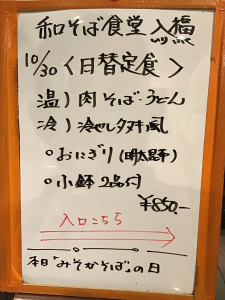 和そば食堂 入福
10/30 〈日替定食〉
温）肉そば・うどん
冷）冷やしタヌキ風
○おにぎり（明太昆布）
○小鉢2品付
¥850.-
入口こちら
本日「みそかそば」の日